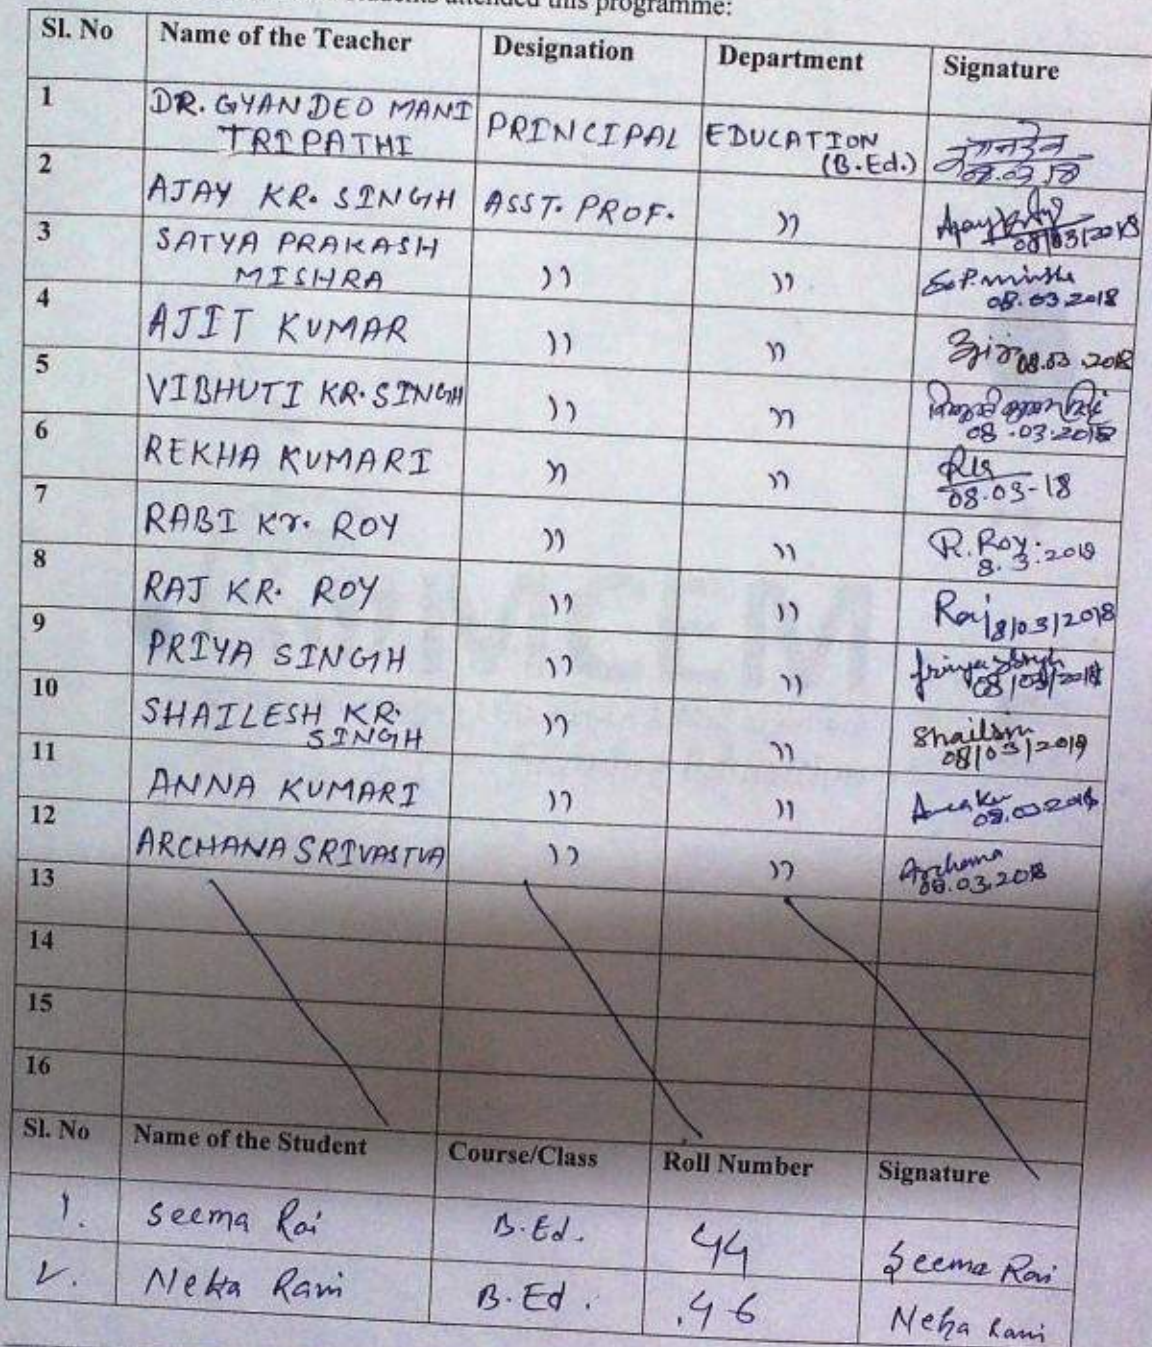 attended this programme:
Sl. No Name of the Teacher Designation Department Signature
1 DR. GYANDEO MANI TRIPATHI PRINCIPAL EDUCATION (B.Ed.)
2 AJAY KR. SINGH ASST. PROF. " 08/03/2018
3 SATYA PRAKASH MISHRA " " S.P. mishra 08.03.2018
4 AJIT KUMAR " " 08.03.2018
5 VIBHUTI KR. SINGH " " 08.03.2018
6 REKHA KUMARI " " 08.03-18
7 RABI Kr. ROY " " R. Roy. 8.3.2018
8 RAJ KR. ROY " " Raj 8/03/2018
9 PRIYA SINGH " " Priya Singh 08/03/2018
10 SHAILESH KR. SINGH " " 08/03/2018
11 ANNA KUMARI " " 08.03.2018
12 ARCHANA SRIVASTVA " " Archana 08.03.2018
13
14
15
16
Sl. No Name of the Student Course/Class Roll Number Signature
1. Seema Rai B.Ed. 44 Seema Rai
2. Neha Rani B.Ed. 46 Neha Rani